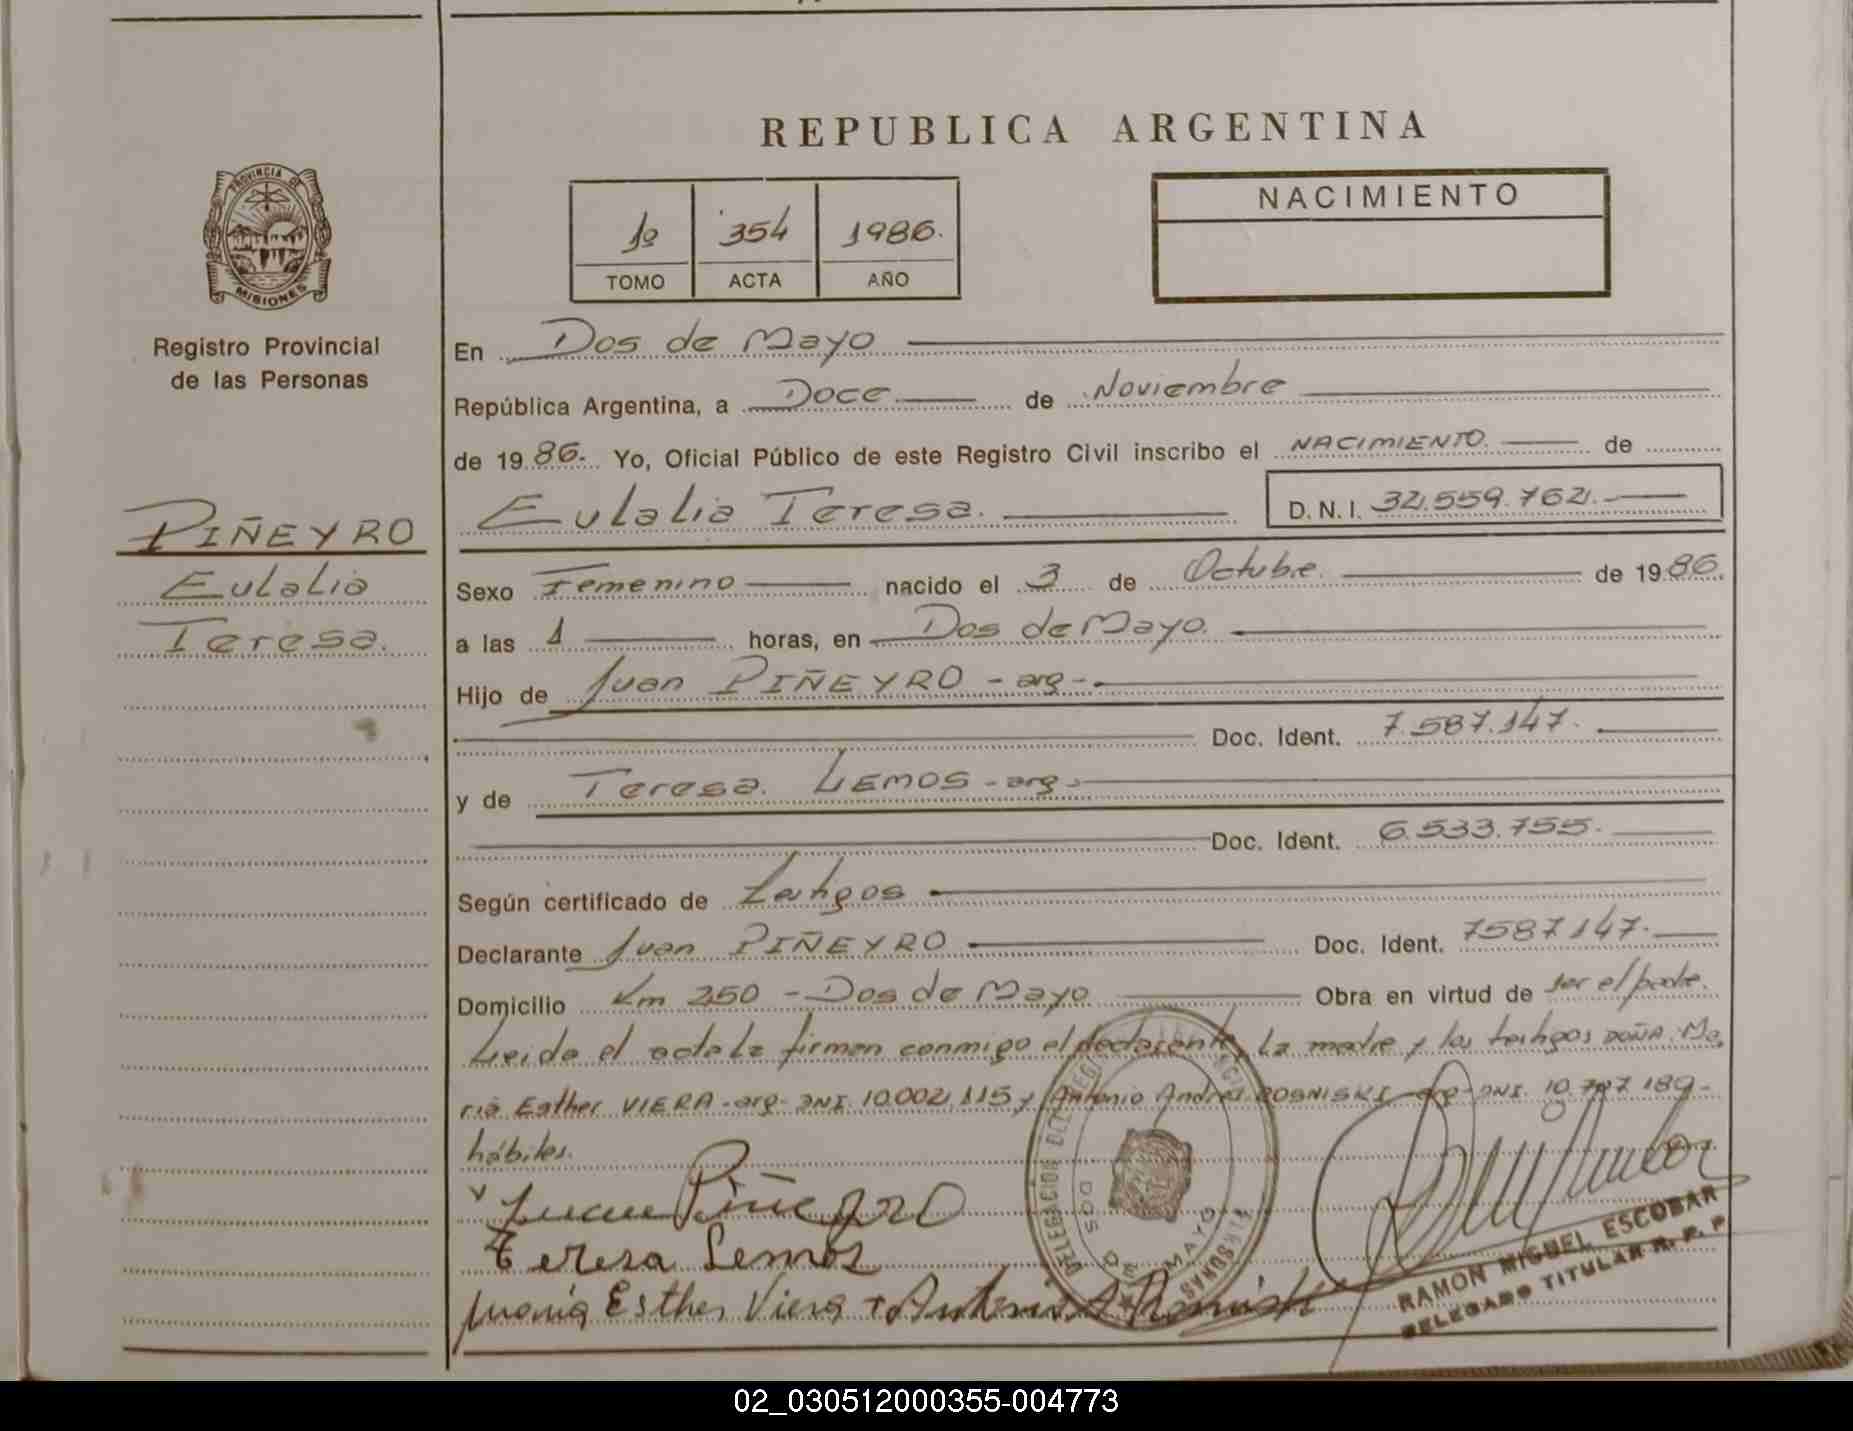 REPUBLICA ARGENTINA
PROVINCIA DE
MISIONES
Registro Provincial
de las Personas
1º 354 1986.
TOMO ACTA AÑO
NACIMIENTO
En Dos de Mayo
República Argentina, a Doce de Noviembre
de 1986. Yo, Oficial Público de este Registro Civil inscribo el NACIMIENTO. de
Eulalia Teresa. D.N.I. 32.559.762.
PIÑEYRO
Eulalia
Teresa.
Sexo Femenino nacido el 3 de Octubre. de 1986.
a las 1 horas, en Dos de Mayo.
Hijo de Juan PIÑEYRO - arg -
Doc. Ident. 7.587.147.
y de Teresa. LEMOS - arg -
Doc. Ident. 6.533.755.
Según certificado de Testigos
Declarante Juan PIÑEYRO Doc. Ident. 7587147.
Domicilio Km 250 - Dos de Mayo Obra en virtud de ser el padre.
Leida el acta la firman conmigo el declarante, la madre y los testigos DOÑA Ma
ria Esther VIERA - arg - DNI 10.002.115 y Antonio Andres - arg - DNI. 10.787.189 -
hábiles.
Juan Piñeyro
Teresa Lemos
Maria Esther Viera Antonio A
DELEGACION DEL REGISTRO PROVINCIAL PERSONAS
DOS DE MAYO
RAMON MIGUEL ESCOBAR
DELEGADO TITULAR R. P. P.
02_030512000355-004773